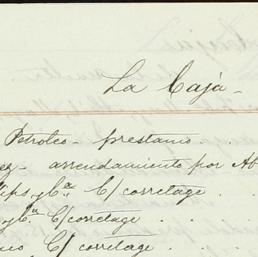 La Caja
Petroleo - prestamo . .
ez - arrendamiento por Ab
lips y Cª C/ corretage . .
y Cª C/ corretage . .
C/ corretage . .